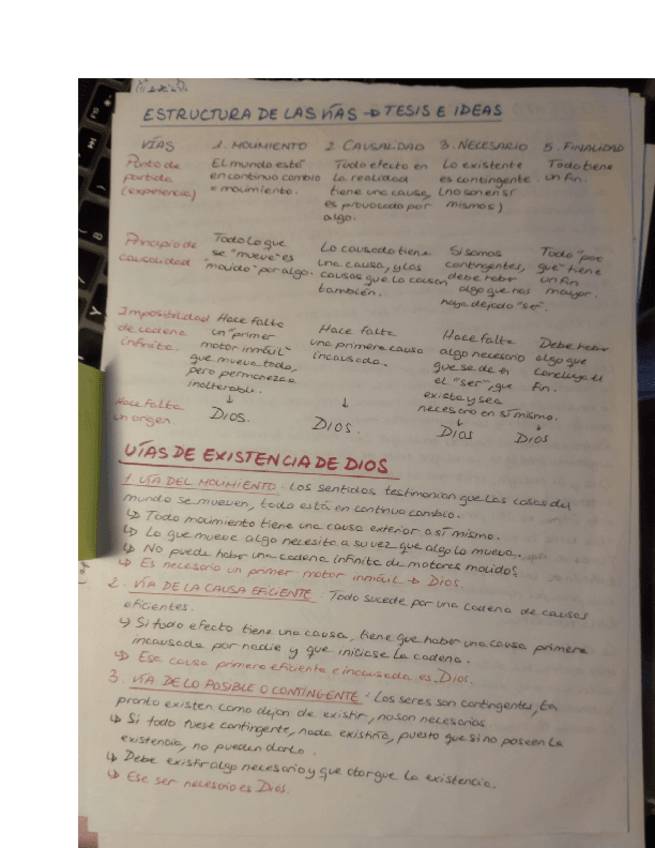 ESTRUCTURA DE LAS VÍAS → TESIS E IDEAS
VÍAS 1. MOVIMIENTO 2. CAUSALIDAD 3. NECESARIO 5. FINALIDAD
Punto de partida (experiencia)
El mundo está
en continuo cambio
= movimiento.
Todo efecto en
la realidad
tiene una causa,
es provocado por
algo.
Lo existente
es contingente
(no son en sí
mismos)
Todo tiene
un fin.
Principio de
causalidad
Todo lo que
se "mueve" es
"movido" por algo.
Lo causado tiene
una causa, y las
causas que lo causan
también.
Si somos
contingentes,
debe haber
algo que nos
haya dejado "ser".
Todo "por
que" tiene
un fin
mayor.
Imposibilidad
de cadena
infinita.
Hace falta
un "primer
motor inmóvil"
que mueva todo,
pero permanezca
inalterable.
Hace falta
una primera causa
incausada.
Hace falta
algo necesario
que se da
el "ser", que
exista y sea
necesario en sí mismo.
Debe haber
algo que
concluya el
fin.
Hace falta
un origen.
↓ DIOS.
↓ DIOS.
↓ DIOS
↓ DIOS
VÍAS DE EXISTENCIA DE DIOS
1. VÍA DEL MOVIMIENTO: Los sentidos testimonian que las cosas del
mundo se mueven, todo está en continuo cambio.
↳ Todo movimiento tiene una causa exterior a sí mismo.
↳ Lo que mueve algo necesita a su vez que algo lo mueva.
↳ No puede haber una cadena infinita de motores movidos
↳ Es necesario un primer motor inmóvil → Dios.
2. VÍA DE LA CAUSA EFICIENTE: Todo sucede por una cadena de causas
eficientes.
↳ Si todo efecto tiene una causa, tiene que haber una causa primera
incausada por nadie y que iniciase la cadena.
↳ Esa causa primera eficiente e incausada es Dios.
3. VÍA DE LO POSIBLE O CONTINGENTE: Los seres son contingentes, tan
pronto existen como dejan de existir, no son necesarios
↳ Si todo fuese contingente, nada existiría, puesto que si no poseen la
existencia, no pueden darla.
↳ Debe existir algo necesario y que otorgue la existencia.
↳ Ese ser necesario es Dios.